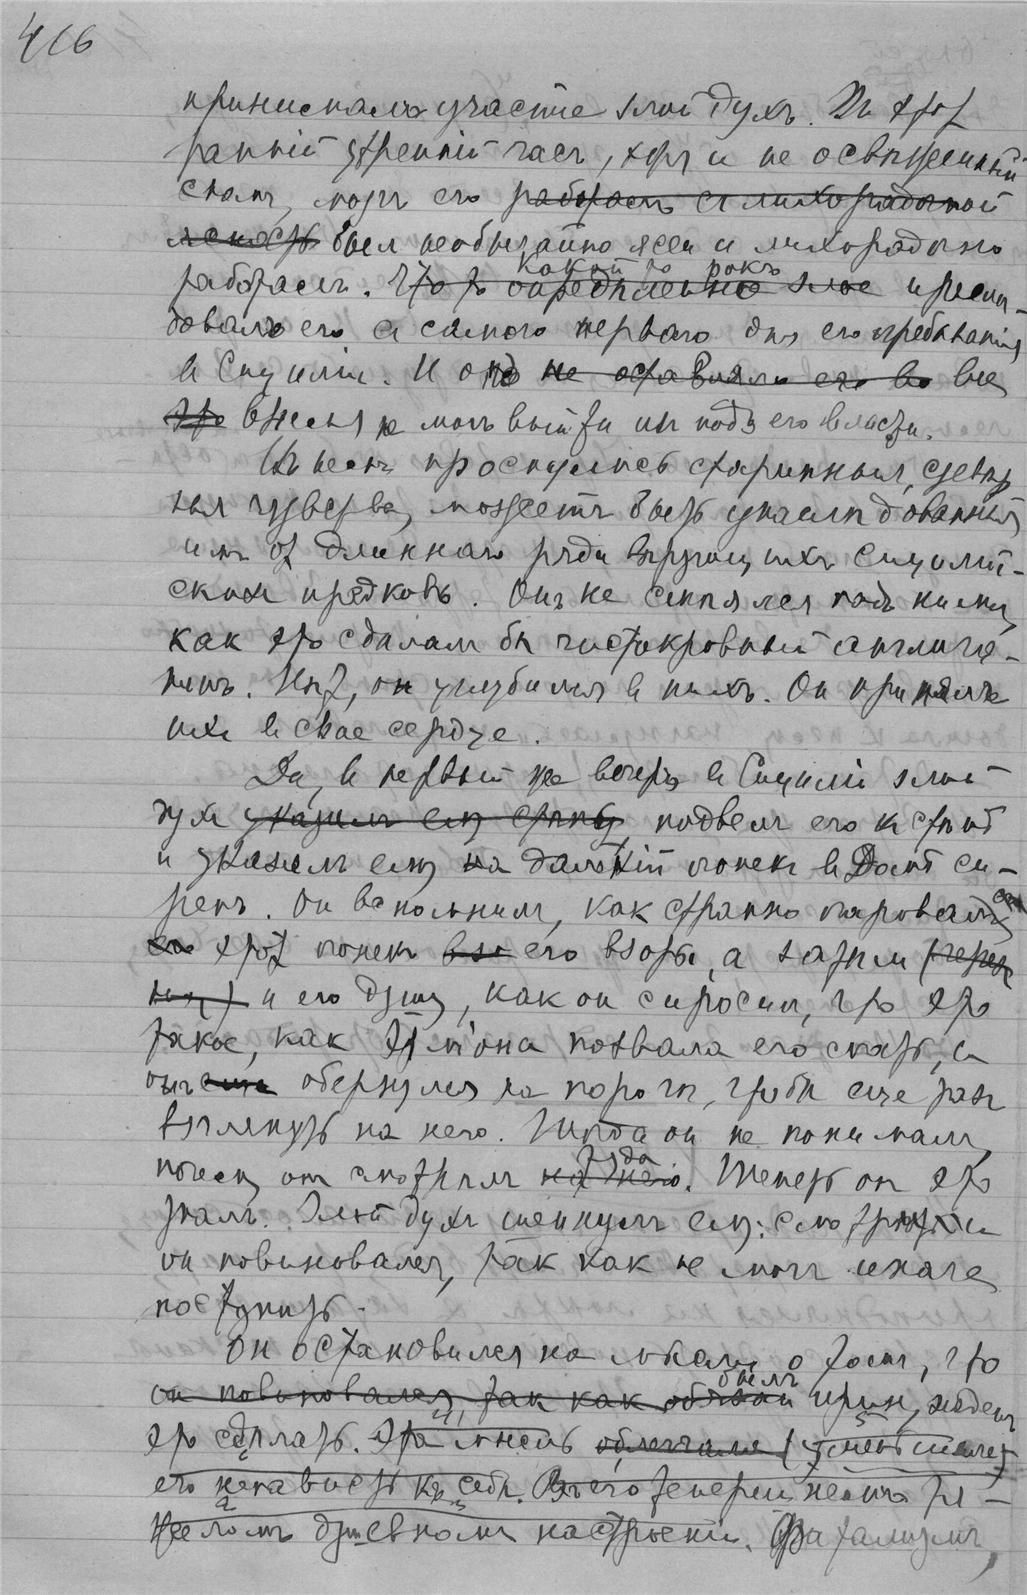 416
принималъ участіе злой духъ. Въ этот
ранній утренній часъ, хотя и не освѣженный
сном, мозгъ его работалъ с лихорадочной
ясность был необычайно ясен и лихорадочно
какой то рокъ
работалъ. Что то опредѣленно злое преслѣ-
довало его с самого перваго дня его пребыванія
в Сициліи. И он не оставляло его во вне
это время не могъ выйти из подъ его власти.
Въ немъ проснулись старинныя, суевѣр
ныя чувства, может быть унаслѣдованныя
им от длиннаго ряда вѣрующихъ сицилій-
ских предковъ. Онъ не смѣялся надъ ними,
как это сдѣлалъ бы чистокровный англича-
нинъ. Нѣт, он углубился в нихъ. Он принялъ
их в свое сердце.
Да, в первый же вечеръ в Сициліи злой
дух указалъ ему стѣну, подвелъ его к стѣнѣ
и указалъ ему на далекій огонек в Домѣ си-
ренъ. Он вспомнил, как странно очаровалъ
сам
его этот огонек взо его взоры, а затѣм (черезъ
них) и его душу, как он спросил, что это
такое, как Эрміона позвала его спать, и
онъ еще обернулся на порогѣ, чтобы еще раз
взглянуть на него. Тогда он не понималъ,
туда
почему он смотрѣлъ на него. Теперь он это
зналъ. Злой духъ шепнулъ ему: смотри и
он повиновался, так как не могъ иначе
поступить.
Он остановился на мысли о том, что
былъ
он повиновался, так как обязан принужден
это сдѣлать. Эта мысль облегчала (уменьшала)
его ненависть къ себѣ. Въ его теперешнемъ тя-
желомъ душевномъ настроеніи. Фатализмъ,